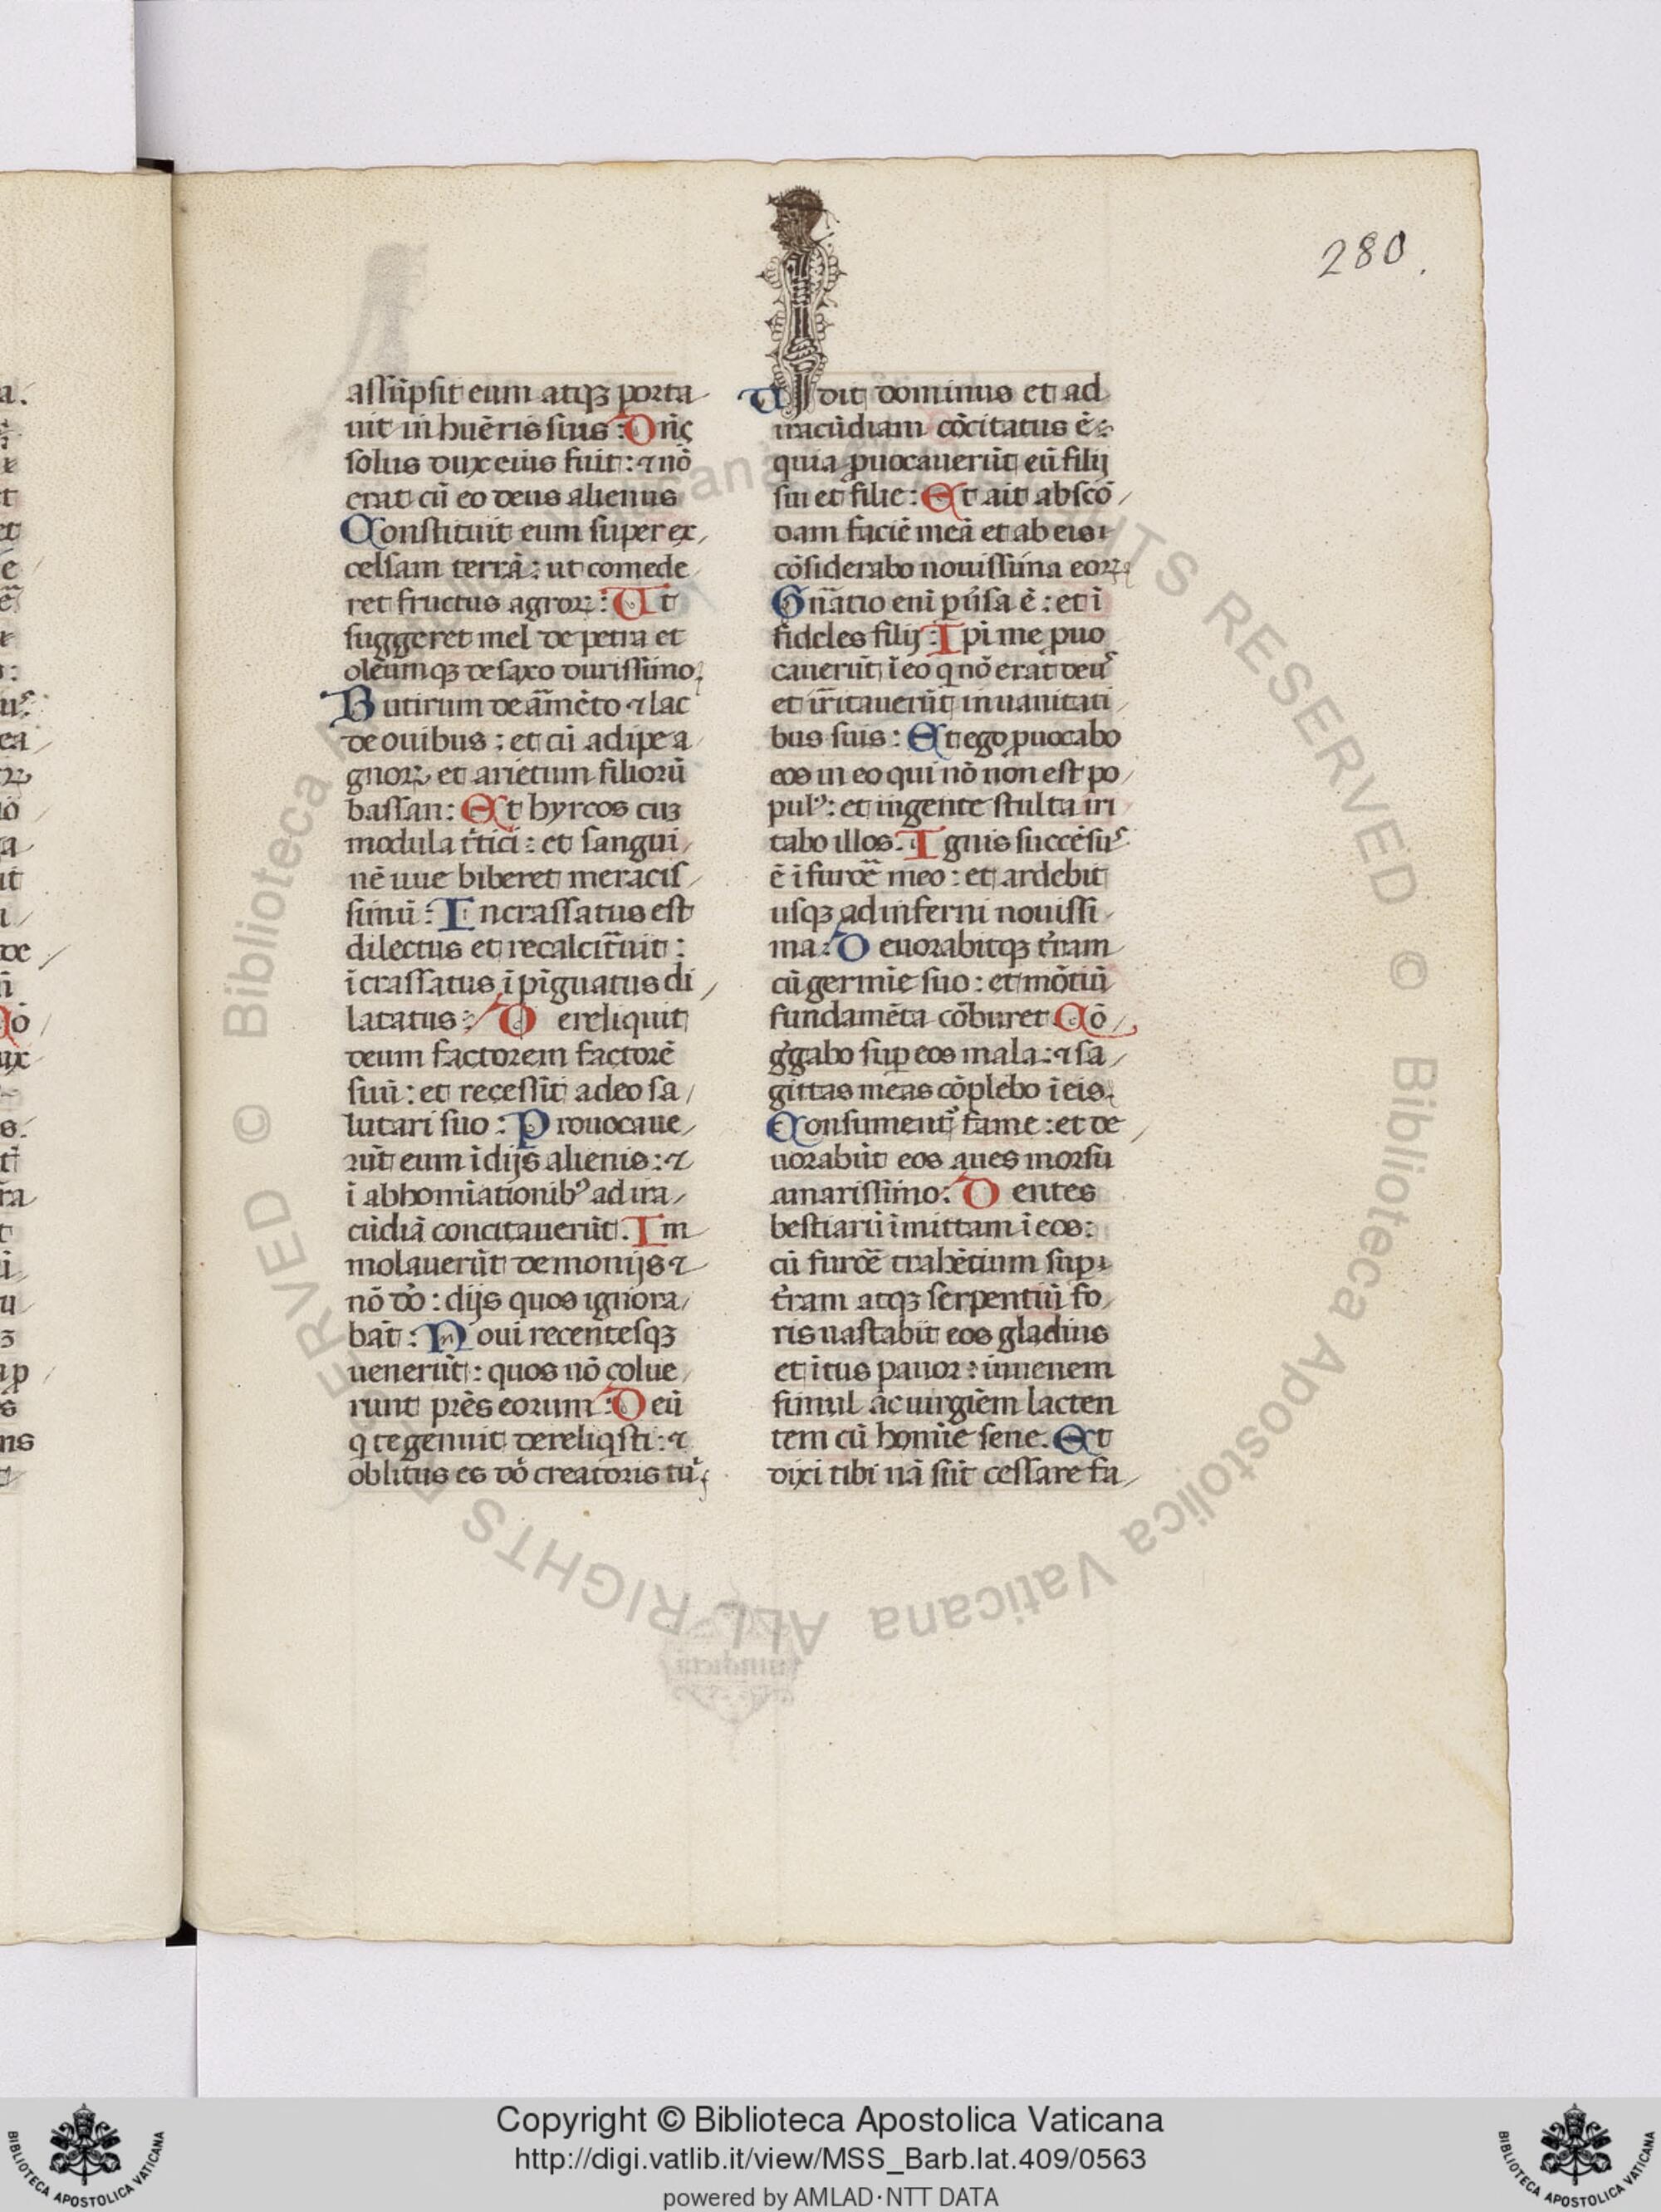 280.
assūpsit eum atqꝫ porta
uit in huēris suis : Dn̄s
solus dux eius fuit : ⁊ nō
erat cū eo deus alienus
Constituit eum super ex
celsam terrā : ut comede
ret fructus agroꝝ : Ut
suggeret mel de petra et
oleumqꝫ de saxo durissimo
Butirum de ām̄ēto ⁊ lac
de ouibus : et cū adipe a
gnoꝝ et arietum filiorū
bassan : Et hyrcos cuꝫ
medula tͥtici : et sangui
nē uue biberet meracis
simū : Incrassatus est
dilectus et recalcitͣuit :
īcrassatus īpīguatus di
latatus : Dereliquit
deum factorem factorē
suū : et recessit a deo sa
lutari suo : Prouocaue
rūt eum ī dijs alienis : ⁊
ī abhomīationibꝰ ad ira
cūdiā concitauerūt. Im
molauerūt demonijs ⁊
nō dō : dijs quos ignora
bāt : Noui recentesqꝫ
uenerūt : quos nō colue
runt pr̄es eorum : Deū
q te genuit dereliqsti : ⁊
oblitus es dō creatoris tuͥ
Uidit dominus et ad
iracūdiam cōcitatus ē :
quia ꝓuocauerūt eū filij
sui et filie : Et ait abscō
dam faciē meā et ab eis
cōsiderabo nouissima eoꝝ
Gn̄atio eni puͥsa ē : et ī
fideles filij : Ipi me ꝓuo
cauerūt ī eo q nō erat deus
et irͥitauerūt in uanitati
bus suis : Et ego ꝓuocabo
eos in eo qui nō non est po
pulꝰ : et in gente stulta iri
tabo illos. Ignis succēsus
ē ī furoē meo : et ardebit
usqꝫ ad inferni nouissi
ma : Deuorabitqꝫ tr̄am
cū germīe suo : et mōtiū
fundamēta cōburet Cō
gͥgabo suꝑ eos mala : ⁊ sa
gittas meas cōplebo ī eis
Consument᷑ fame : et de
uorabūt eos aues morsu
amarissimo : Dentes
bestiarū īmittam ī eos :
cū furoē trahētium suꝑ
tr̄am atqꝫ serpentiū fo
ris uastabit eos gladius
et ītus pauor : iuuenem
simul ac uirgiēm lacten
tem cū homīe sene. Et
dixi tibi nā sūt cessare fa
Copyright © Biblioteca Apostolica Vaticana
http://digi.vatlib.it/view/MSS_Barb.lat.409/0563
powered by AMLAD·NTT DATA
BIBLIOTECA APOSTOLICA VATICANA
BIBLIOTECA APOSTOLICA VATICANA